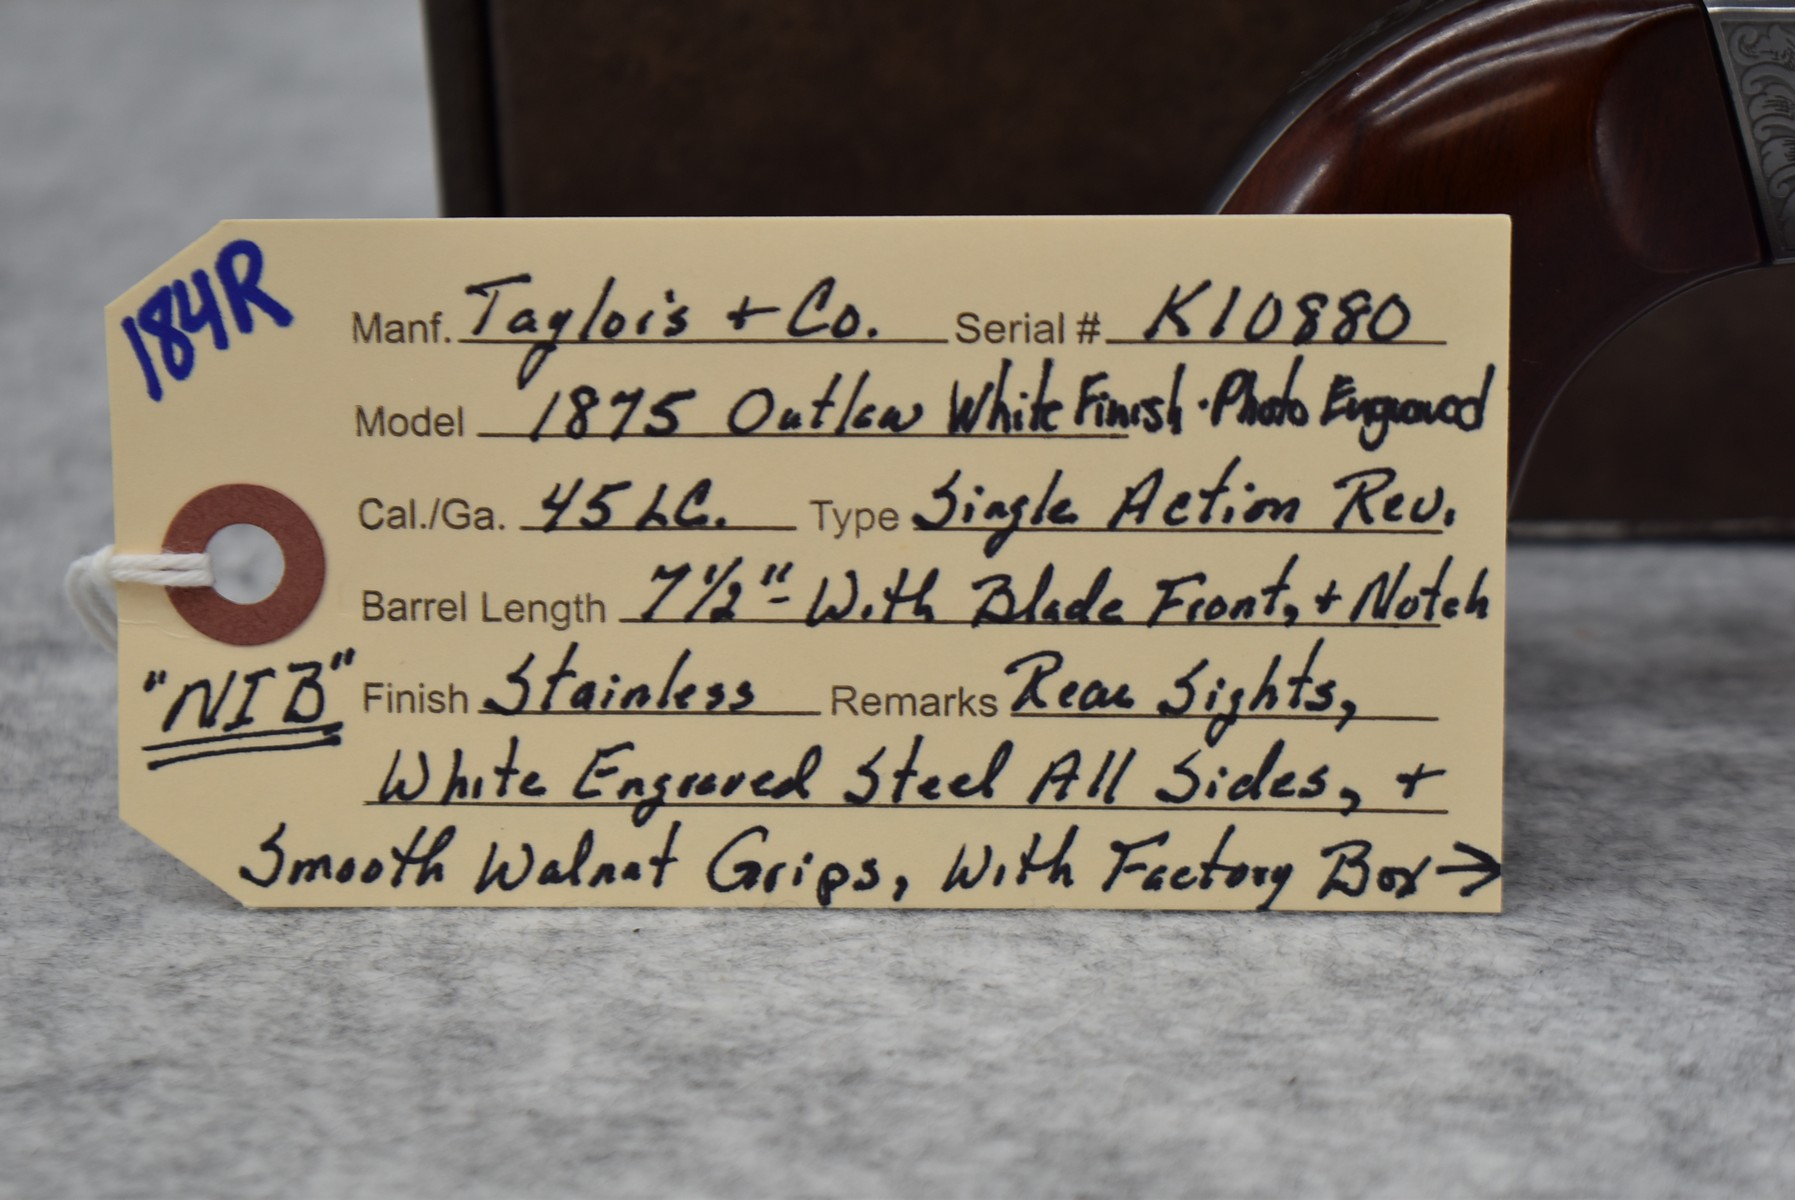 184R
Manf. Taylor's + Co. Serial # K10880
Model 1875 Outlaw White Finish · Photo Engraved
Cal./Ga. 45 LC. Type Single Action Rev.
Barrel Length 7 1/2" - With Blade Front, + Notch
"NIB" Finish Stainless Remarks Rear Sights,
White Engraved Steel All Sides, +
Smooth Walnut Grips, With Factory Box →